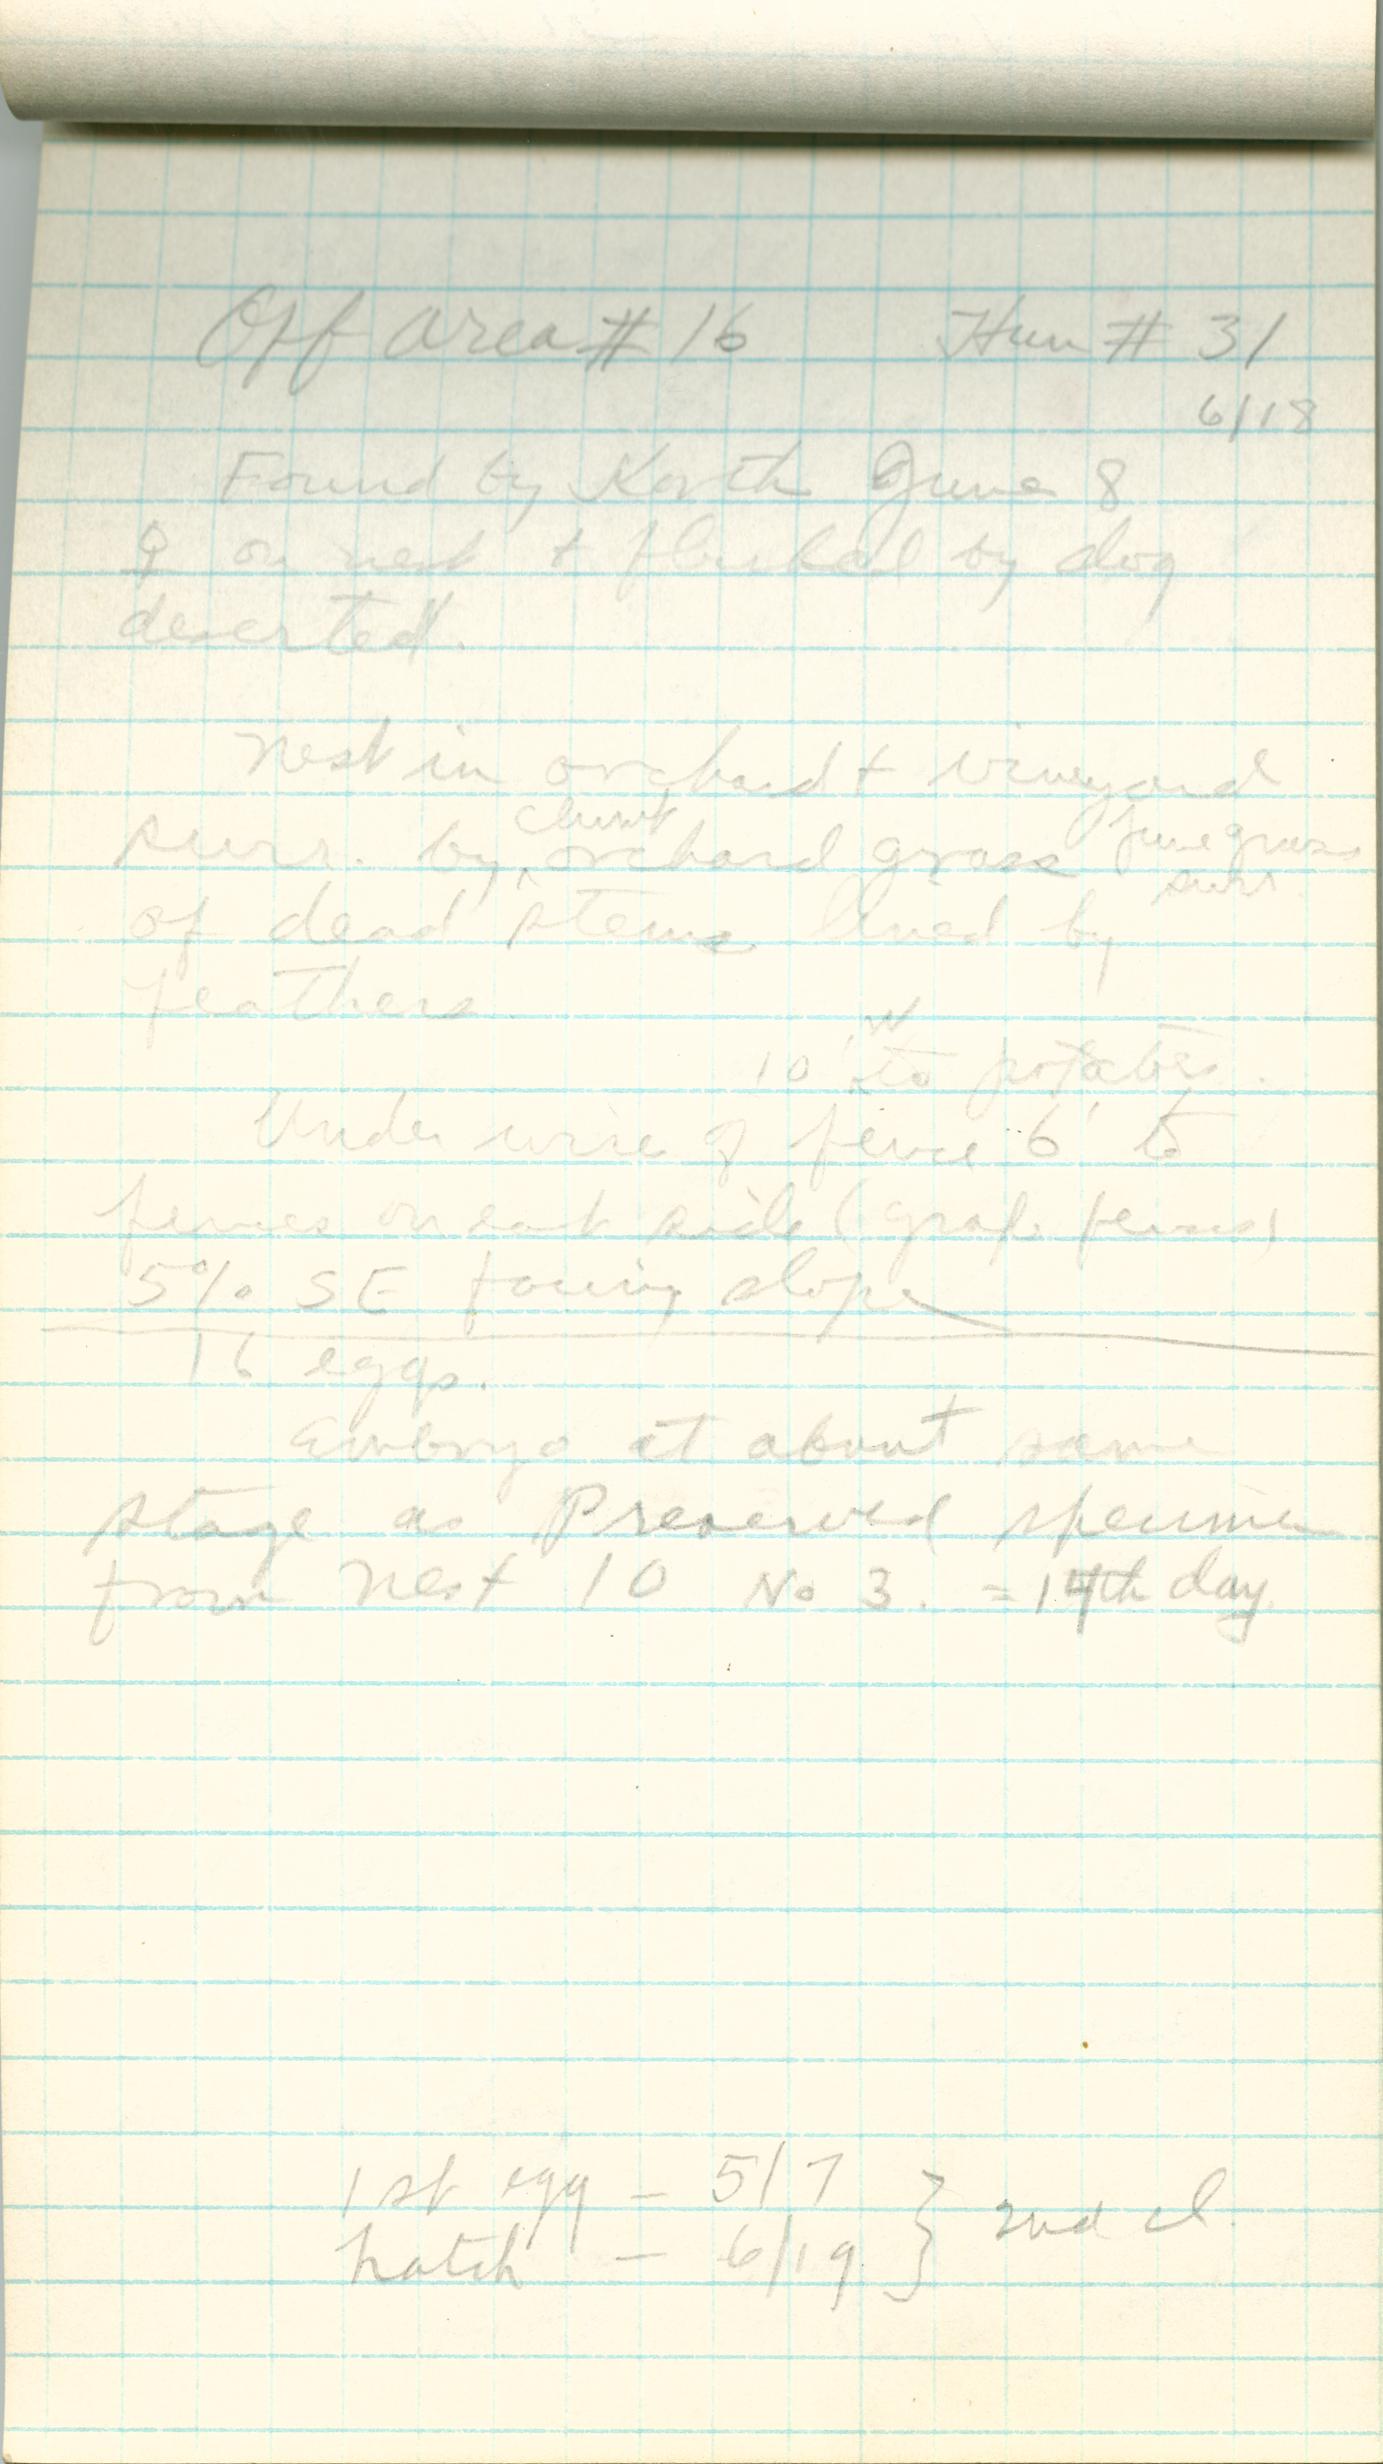 Off area # 16 Hun # 31
6/18
Found by Korth June 8
♀ on nest + flushed by dog
deserted.
Nest in orchard + vineyard
clump
surr. by ^ orchard grass June grass
surr.
of dead stems lined by
feathers.
W
10' to potatoes.
Under wire of fence 6' to
fences on each side (grape fences)
5% SE facing slope
16 eggs.
Embryo at about same
stage as Preserved specimen
from nest 10 No 3. = 14th day.
1st egg — 5/7
hatch — 6/19 } 2nd cl.